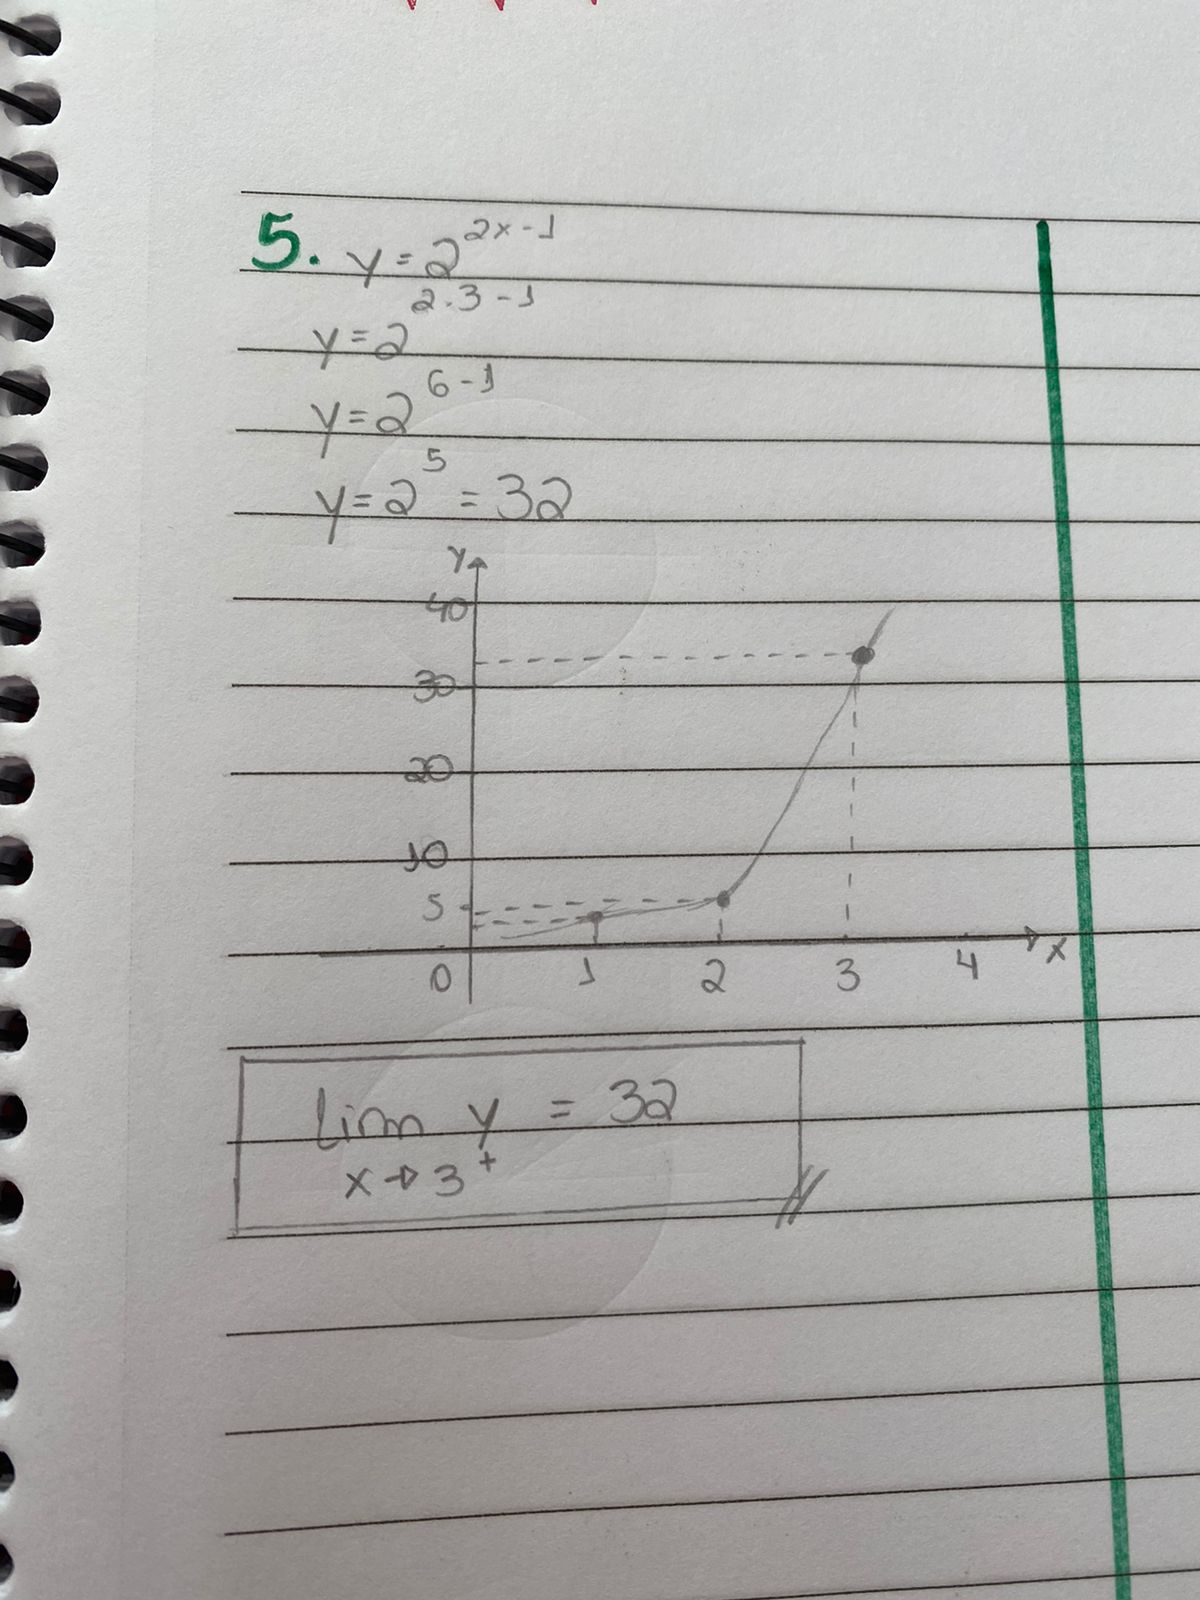 5. y = 2^{2x-1}
y = 2^{2.3-1}
y = 2^{6-1}
y = 2^5 = 32
y
40
30
20
10
5
0 1 2 3 4 x
lim y = 32
x → 3^+